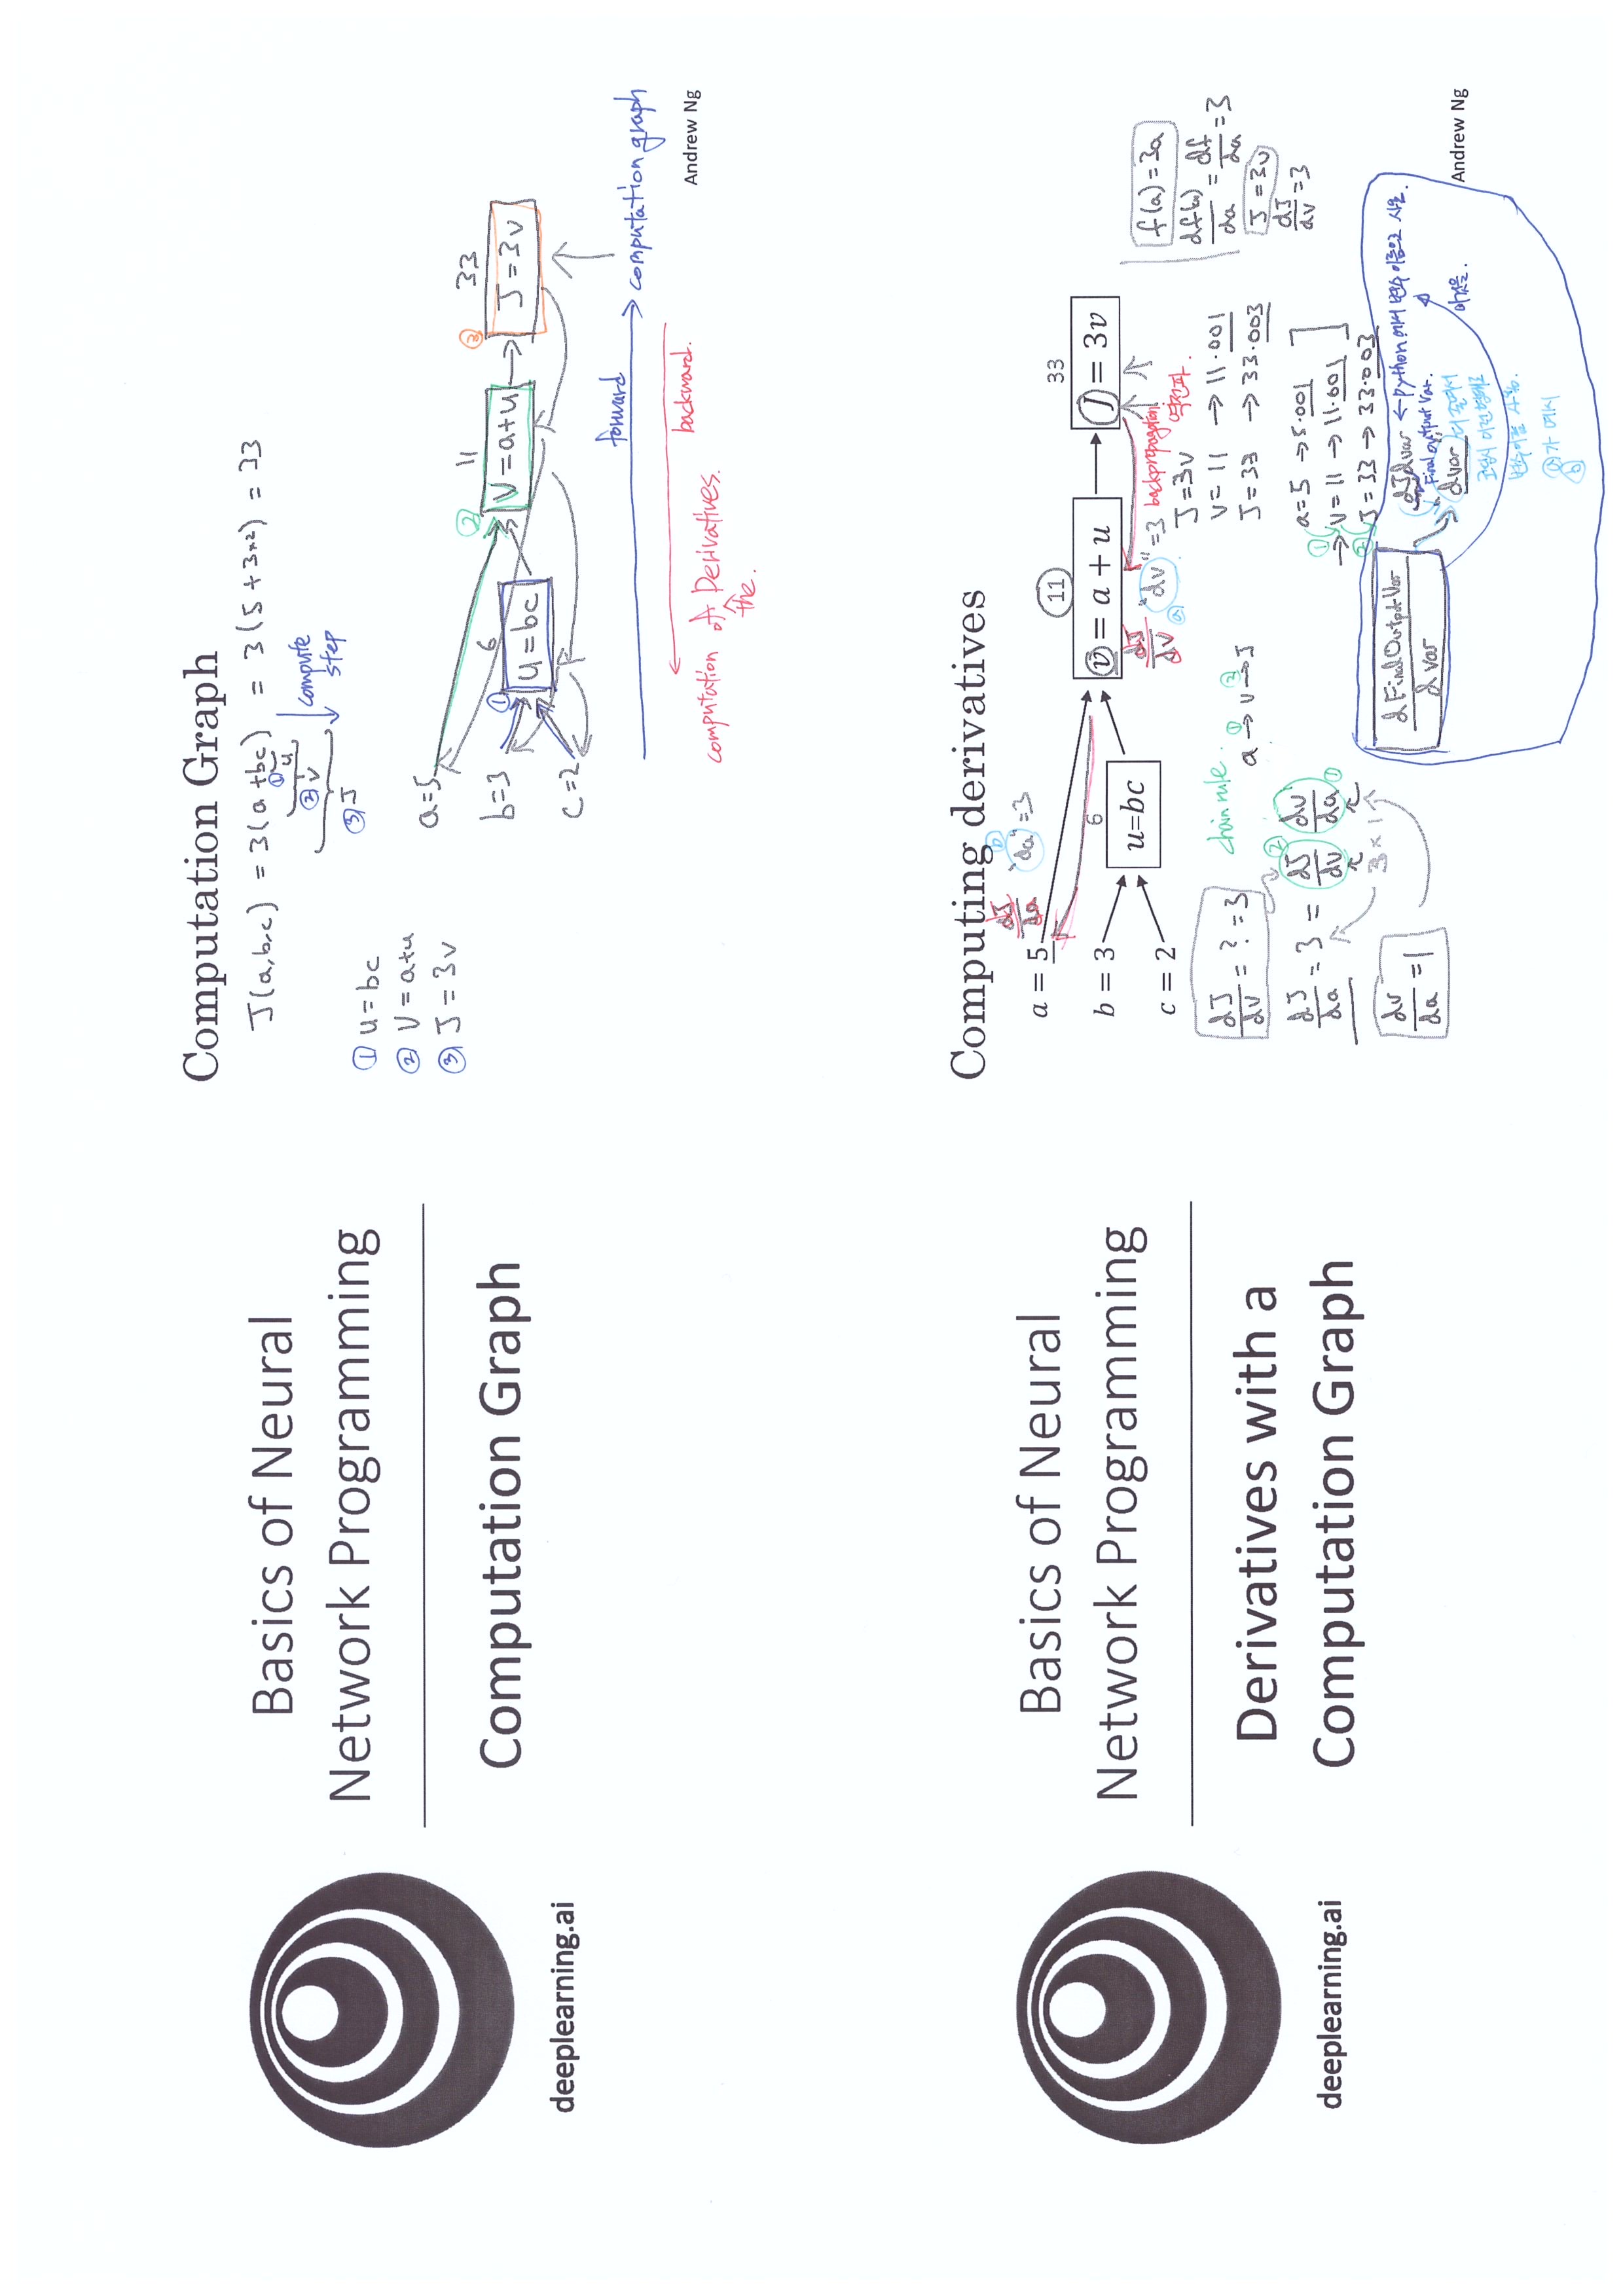 Basics of Neural
Network Programming
Computation Graph
deeplearning.ai
Computation Graph
J(a,b,c) = 3(a+bc) = 3(5+3×2) = 33
① u
② v
③ J
compute
step
① u=bc
② V=a+u
③ J=3v
a=5
b=3
c=2
① 6
u=bc
② 11
V=a+u
③ 33
J=3v
forward
computation graph
backward.
computation of the Derivatives.
Andrew Ng
Basics of Neural
Network Programming
Derivatives with a
Computation Graph
deeplearning.ai
Computing derivatives
a = 5
dJ/da ⓑ "da"=3
b = 3
c = 2
6
u=bc
11
v = a + u
33
J = 3v
dJ/dv ⓐ "dv"=3
backpropagation
역전파.
J=3v
v=11 → 11.001
J=33 → 33.003
f(a)=3a
df(a)/da = df/da = 3
J=3v
dJ/dv=3
dJ/dv = ? = 3
chain rule.
a ①→ v ②→ J
dJ/da = 3 = dJ/dv ② dv/da ①
3 × 1
dv/da = 1
a=5 → 5.001
① v=11 → 11.001
② J=33 → 33.003
dFinalOutputVar/dvar
dJdvar ← python에서 변수이름으로 사용.
Final output Var.
dvar 더 줄여서
이것을.
코딩시 이런형태로
변수이름 사용.
ⓐ가 예시
ⓑ
Andrew Ng